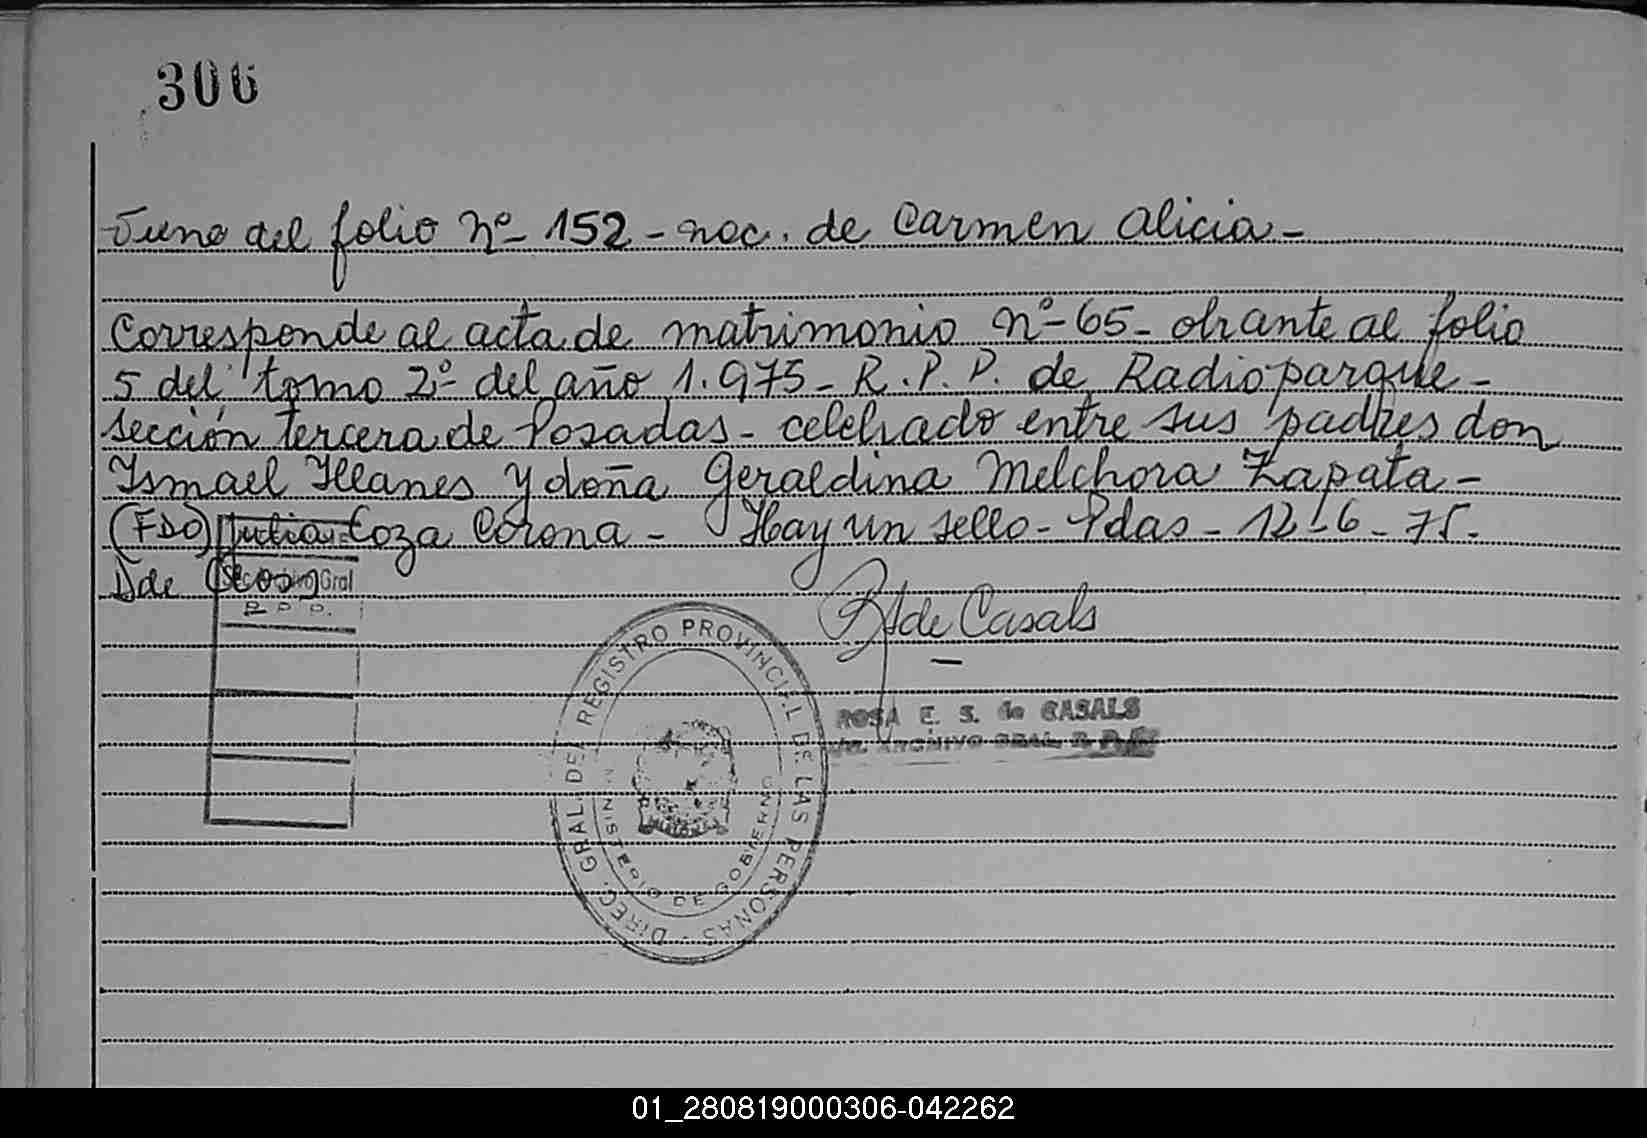 306
del folio nº 152 - nac. de Carmen Alicia -
Corresponde al acta de matrimonio nº 65 - obrante al folio
5 del tomo 2º del año 1.975 - R.P.P. de Radioparque -
sección tercera de Posadas - celebrado entre sus padres don
Ismael Illanes y doña Geraldina Melchora Zapata -
(FDO) Julia Coza Corona - Hay un sello - Pdas - 12-6-75.
Gral
R de Casals
ROSA E. S. de CASALS
ARCHIVO GRAL. R.P.P.
DIREC. GRAL. DEL REGISTRO PROVINCIAL DE LAS PERSONAS -
MINISTERIO DE GOBIERNO
MISIONES
01_280819000306-042262